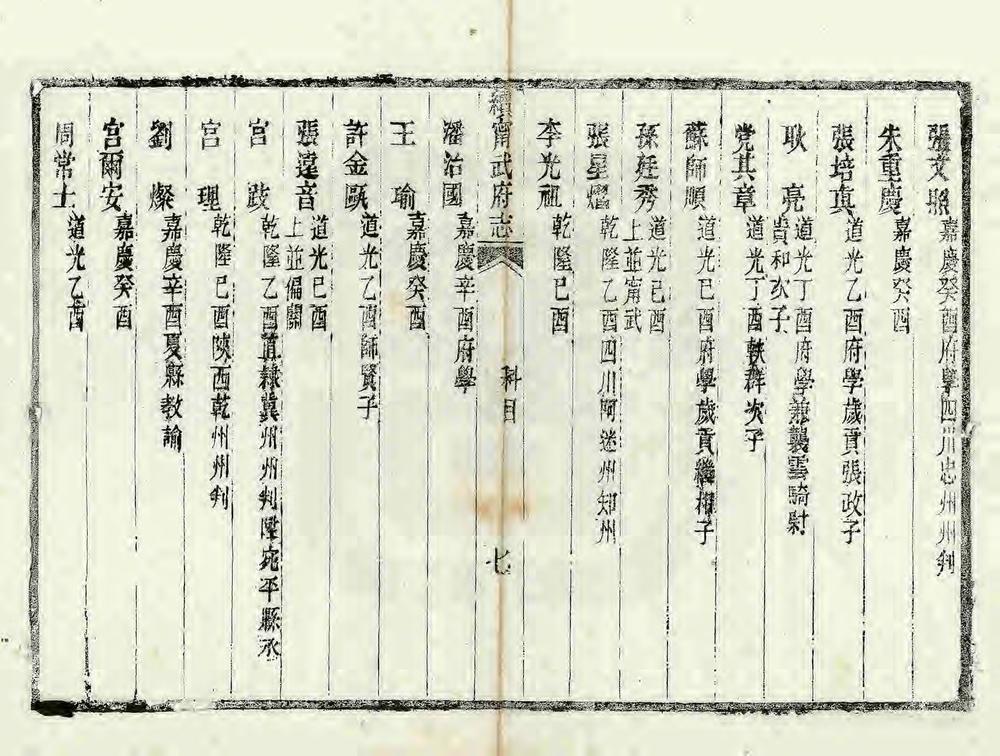 張文照 嘉慶癸酉府學四川忠州州判
朱重慶 嘉慶癸酉
張培真 道光乙酉府學歲貢張政子
耿亮 道光丁酉府學兼襲雲騎尉
貴和次子
党其章 道光丁酉軼群次子
蘇師順 道光己酉府學歲貢繼相子
孫廷秀 道光己酉
上並甯武
張星熠 乾隆乙酉四川阿迷州知州
李光祖 乾隆己酉
續甯武府志 科目 七
潘沾國 嘉慶辛酉府學
王瑜 嘉慶癸酉
許金甌 道光乙酉師賢子
張遠音 道光己酉
上並偏關
宮跂 乾隆乙酉直隸冀州州判陞宛平縣丞
宮理 乾隆己酉陝西乾州州判
劉燦 嘉慶辛酉夏縣教諭
宮爾安 嘉慶癸酉
周常士 道光乙酉